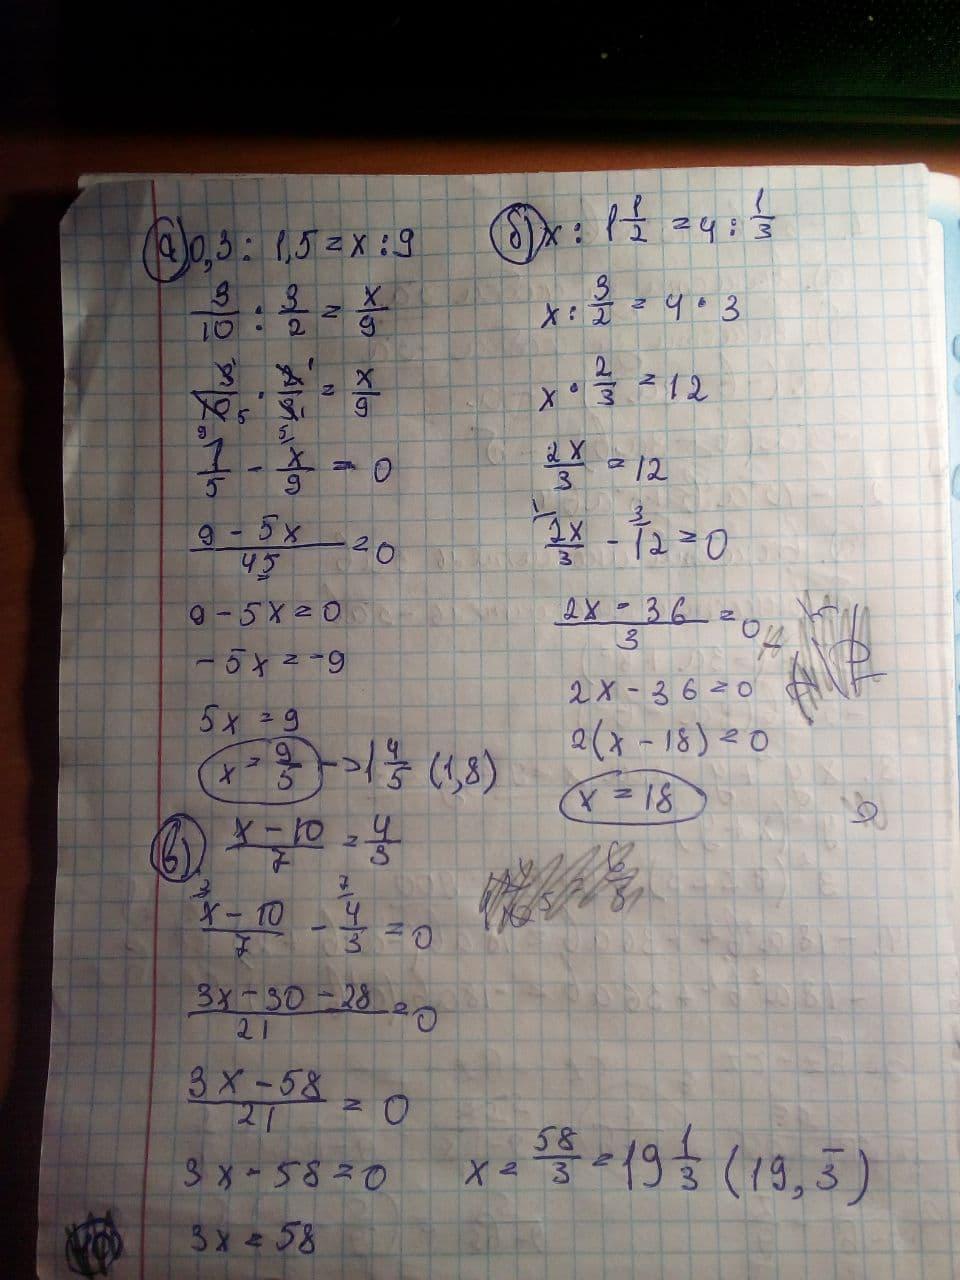 а) 0,3 : 1,5 = x : 9
3/10 : 3/2 = x/9
3/10 5 · 2 1/3 1 = x/9
9 1/5 - 5 x/9 = 0
(9 - 5x)/45 = 0
9 - 5x = 0
-5x = -9
5x = 9
x = 9/5 -> 1 4/5 (1,8)
б) x : 1 1/2 = 4 : 1/3
x : 3/2 = 4 · 3
x · 2/3 = 12
2x/3 = 12
1 2x/3 - 3 12 = 0
(2x - 36)/3 = 0
2x - 36 = 0
2(x - 18) = 0
x = 18
в) (x - 10)/7 = 4/3
3 (x - 10)/7 - 7 4/3 = 0
(3x - 30 - 28)/21 = 0
(3x - 58)/21 = 0
3x - 58 = 0
3x = 58
x = 58/3 = 19 1/3 (19,3̅)